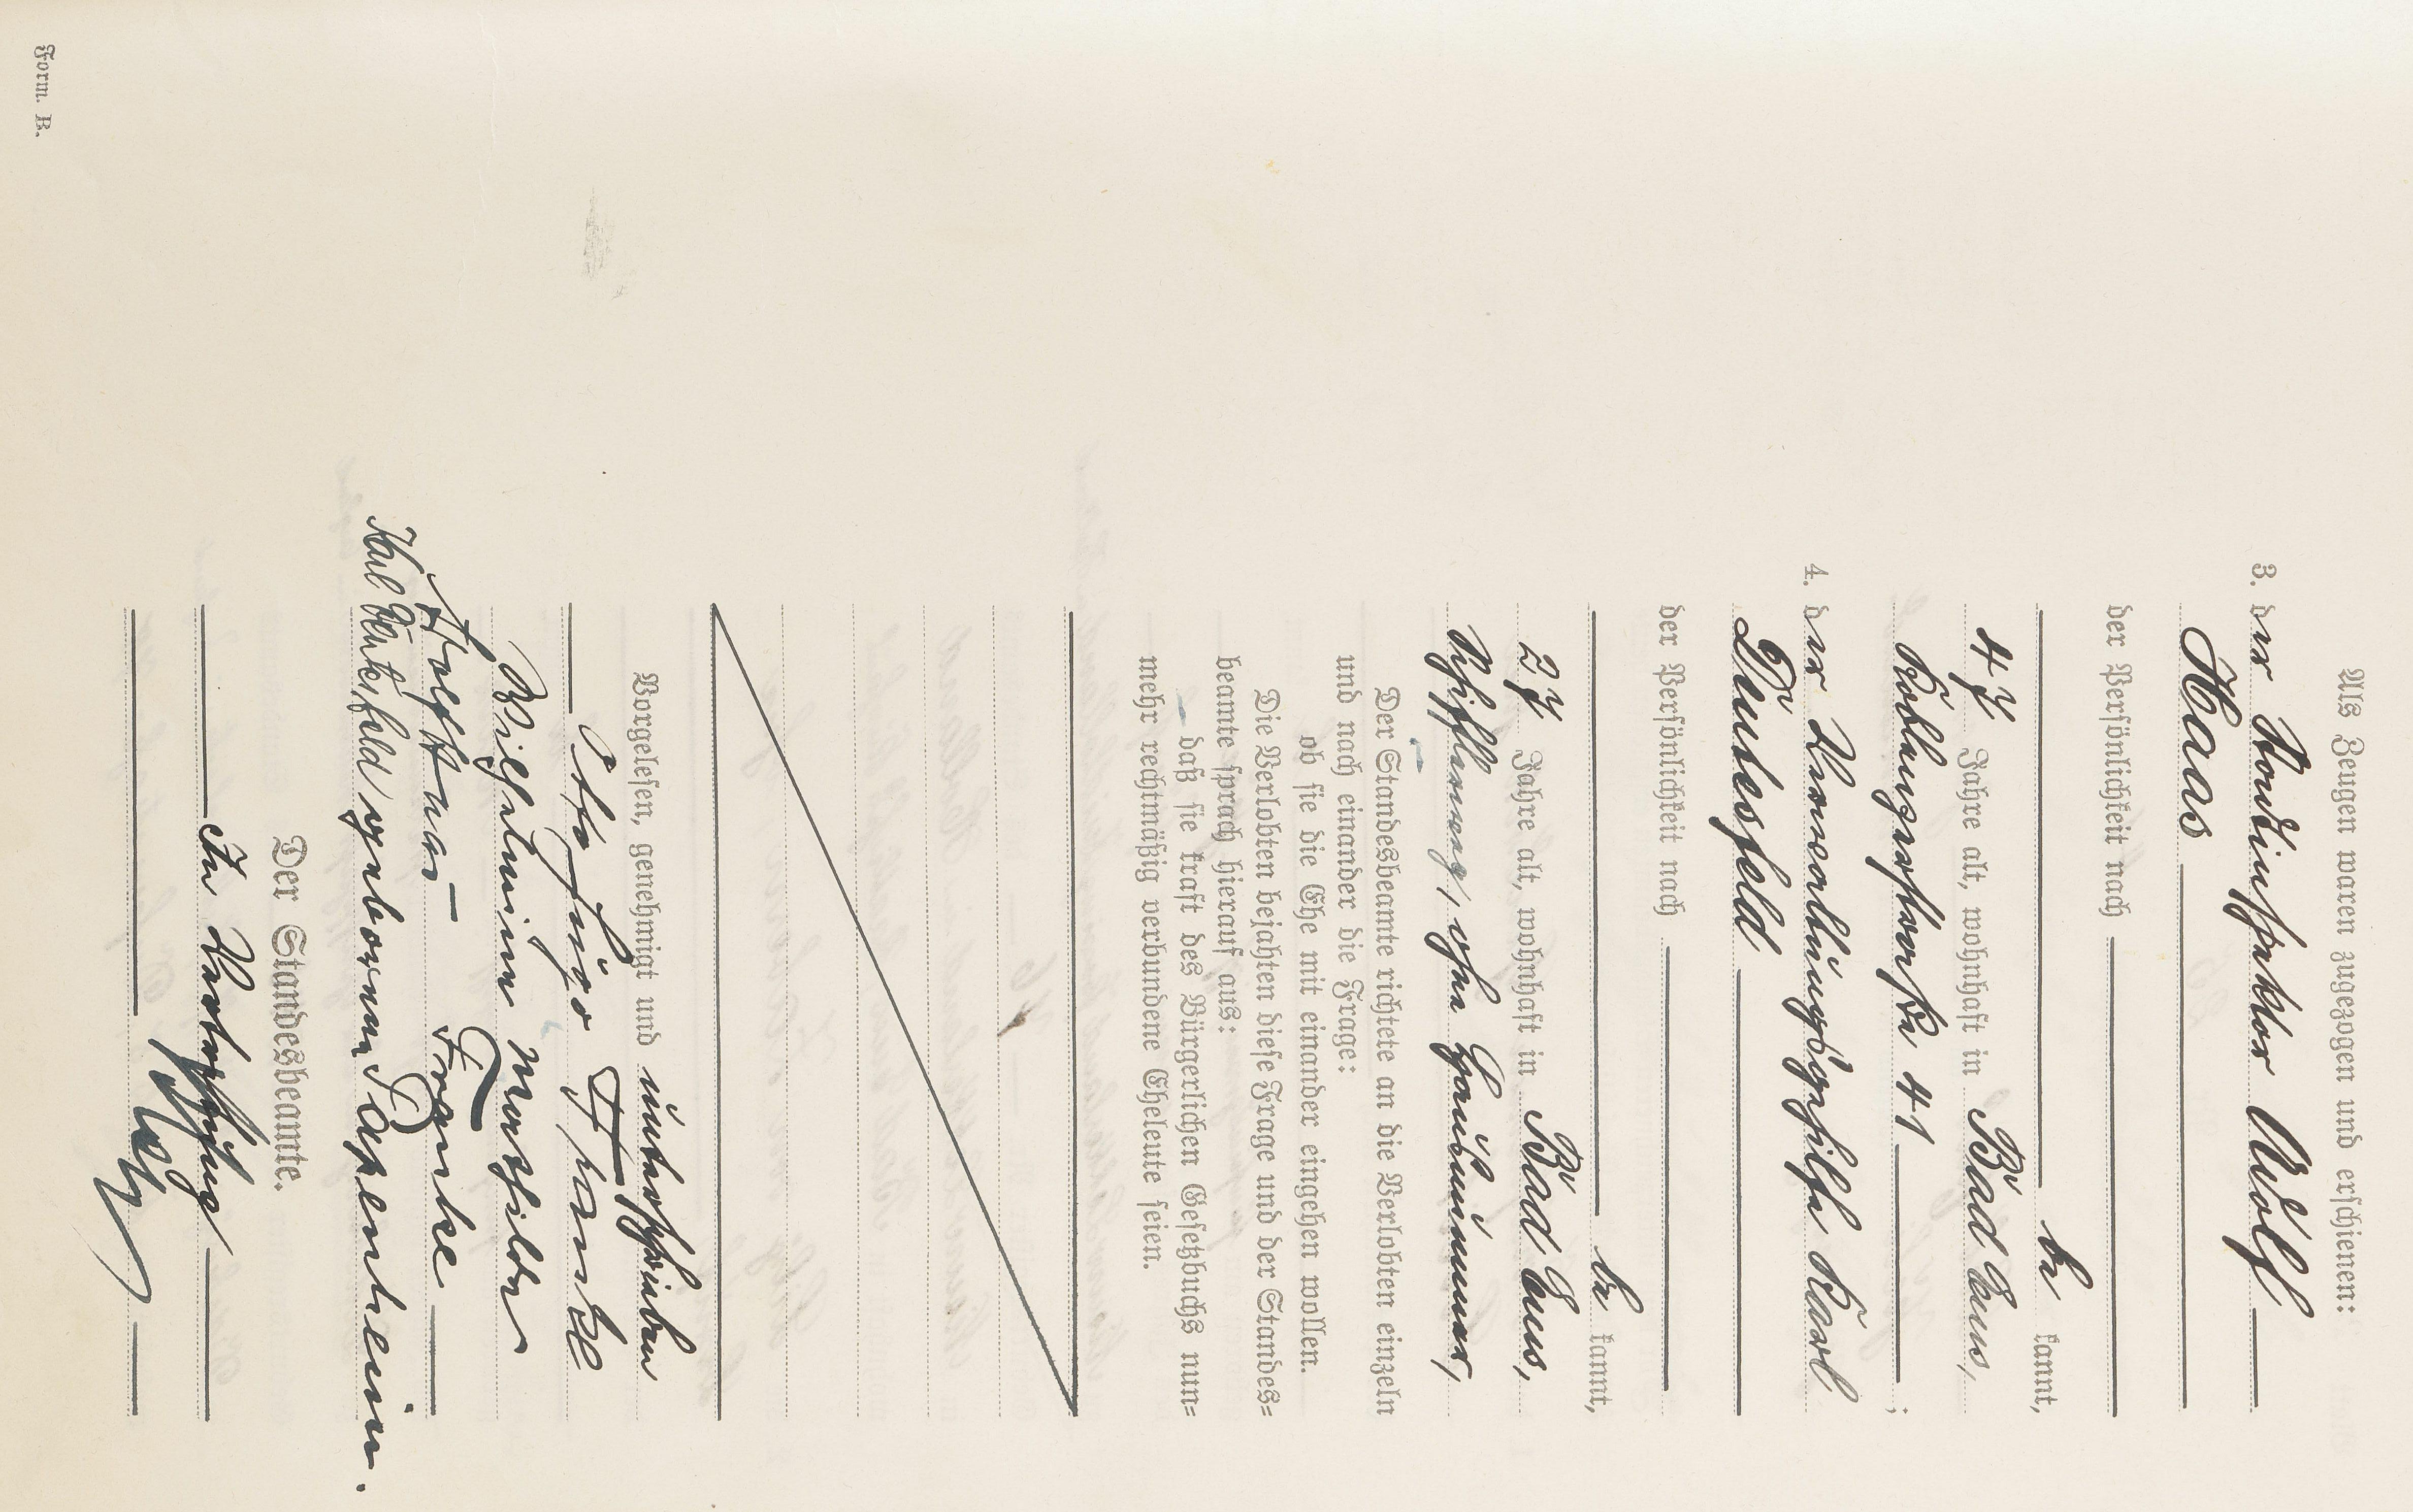 Als Zeugen waren zugezogen und erschienen:
3. der Stadtinspektor Adolf
Haas
der Persönlichkeit nach
be kannt,
47 Jahre alt, wohnhaft in Bad Ems,
Koblenzerstraße 41 ;
4. der Verwaltungsgehilfe Karl
Dünkesfeld
der Persönlichkeit nach
be kannt,
27 Jahre alt, wohnhaft in Bad Ems,
Schifferweg, ohne Hausnummer,
Der Standesbeamte richtete an die Verlobten einzeln
und nach einander die Frage:
ob sie die Ehe mit einander eingehen wollen.
Die Verlobten bejahten diese Frage und der Standes=
beamte sprach hierauf aus:
daß sie kraft des Bürgerlichen Gesetzbuchs nun=
mehr rechtmäßig verbundene Eheleute seien.
Vorgelesen, genehmigt und unterschrieben
Otto Hugo
Wilhelmine
Franke
geborenen Papenheim.
Der Standesbeamte.
In Vertretung